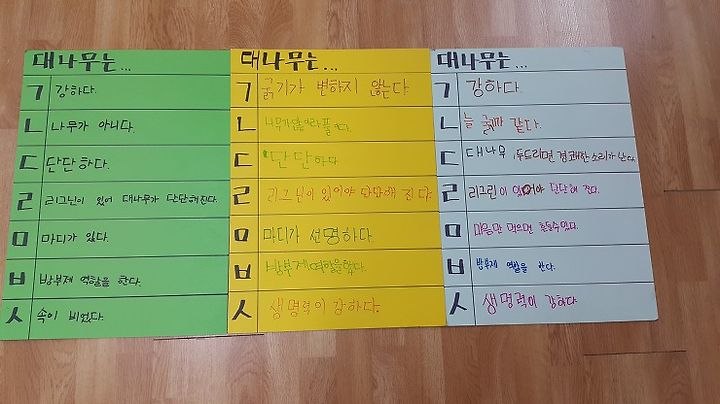 대나무는...
ㄱ 강하다.
ㄴ 나무가 아니다.
ㄷ 단단하다.
ㄹ 리그닌이 있어 대나무가 단단해진다.
ㅁ 마디가 있다.
ㅂ 방부제 역할을 한다.
ㅅ 속이 비었다.
대나무는...
ㄱ 굵기가 변하지 않는다
ㄴ 나무가
ㄷ 단단하다
ㄹ 리그닌이 있어야 단단해 진다.
ㅁ 마디가 선명하다.
ㅂ 방부제역할을
ㅅ 생명력이 강하다.
대나무는...
ㄱ 강하다.
ㄴ 늘 같다.
ㄷ 대나무 두드리면 경쾌한 소리가 난다.
ㄹ 리그린이 있어야 단단해 진다.
ㅁ 마음만 먹으면
ㅂ 방부제 역할을 한다.
ㅅ 생명력이 강하다